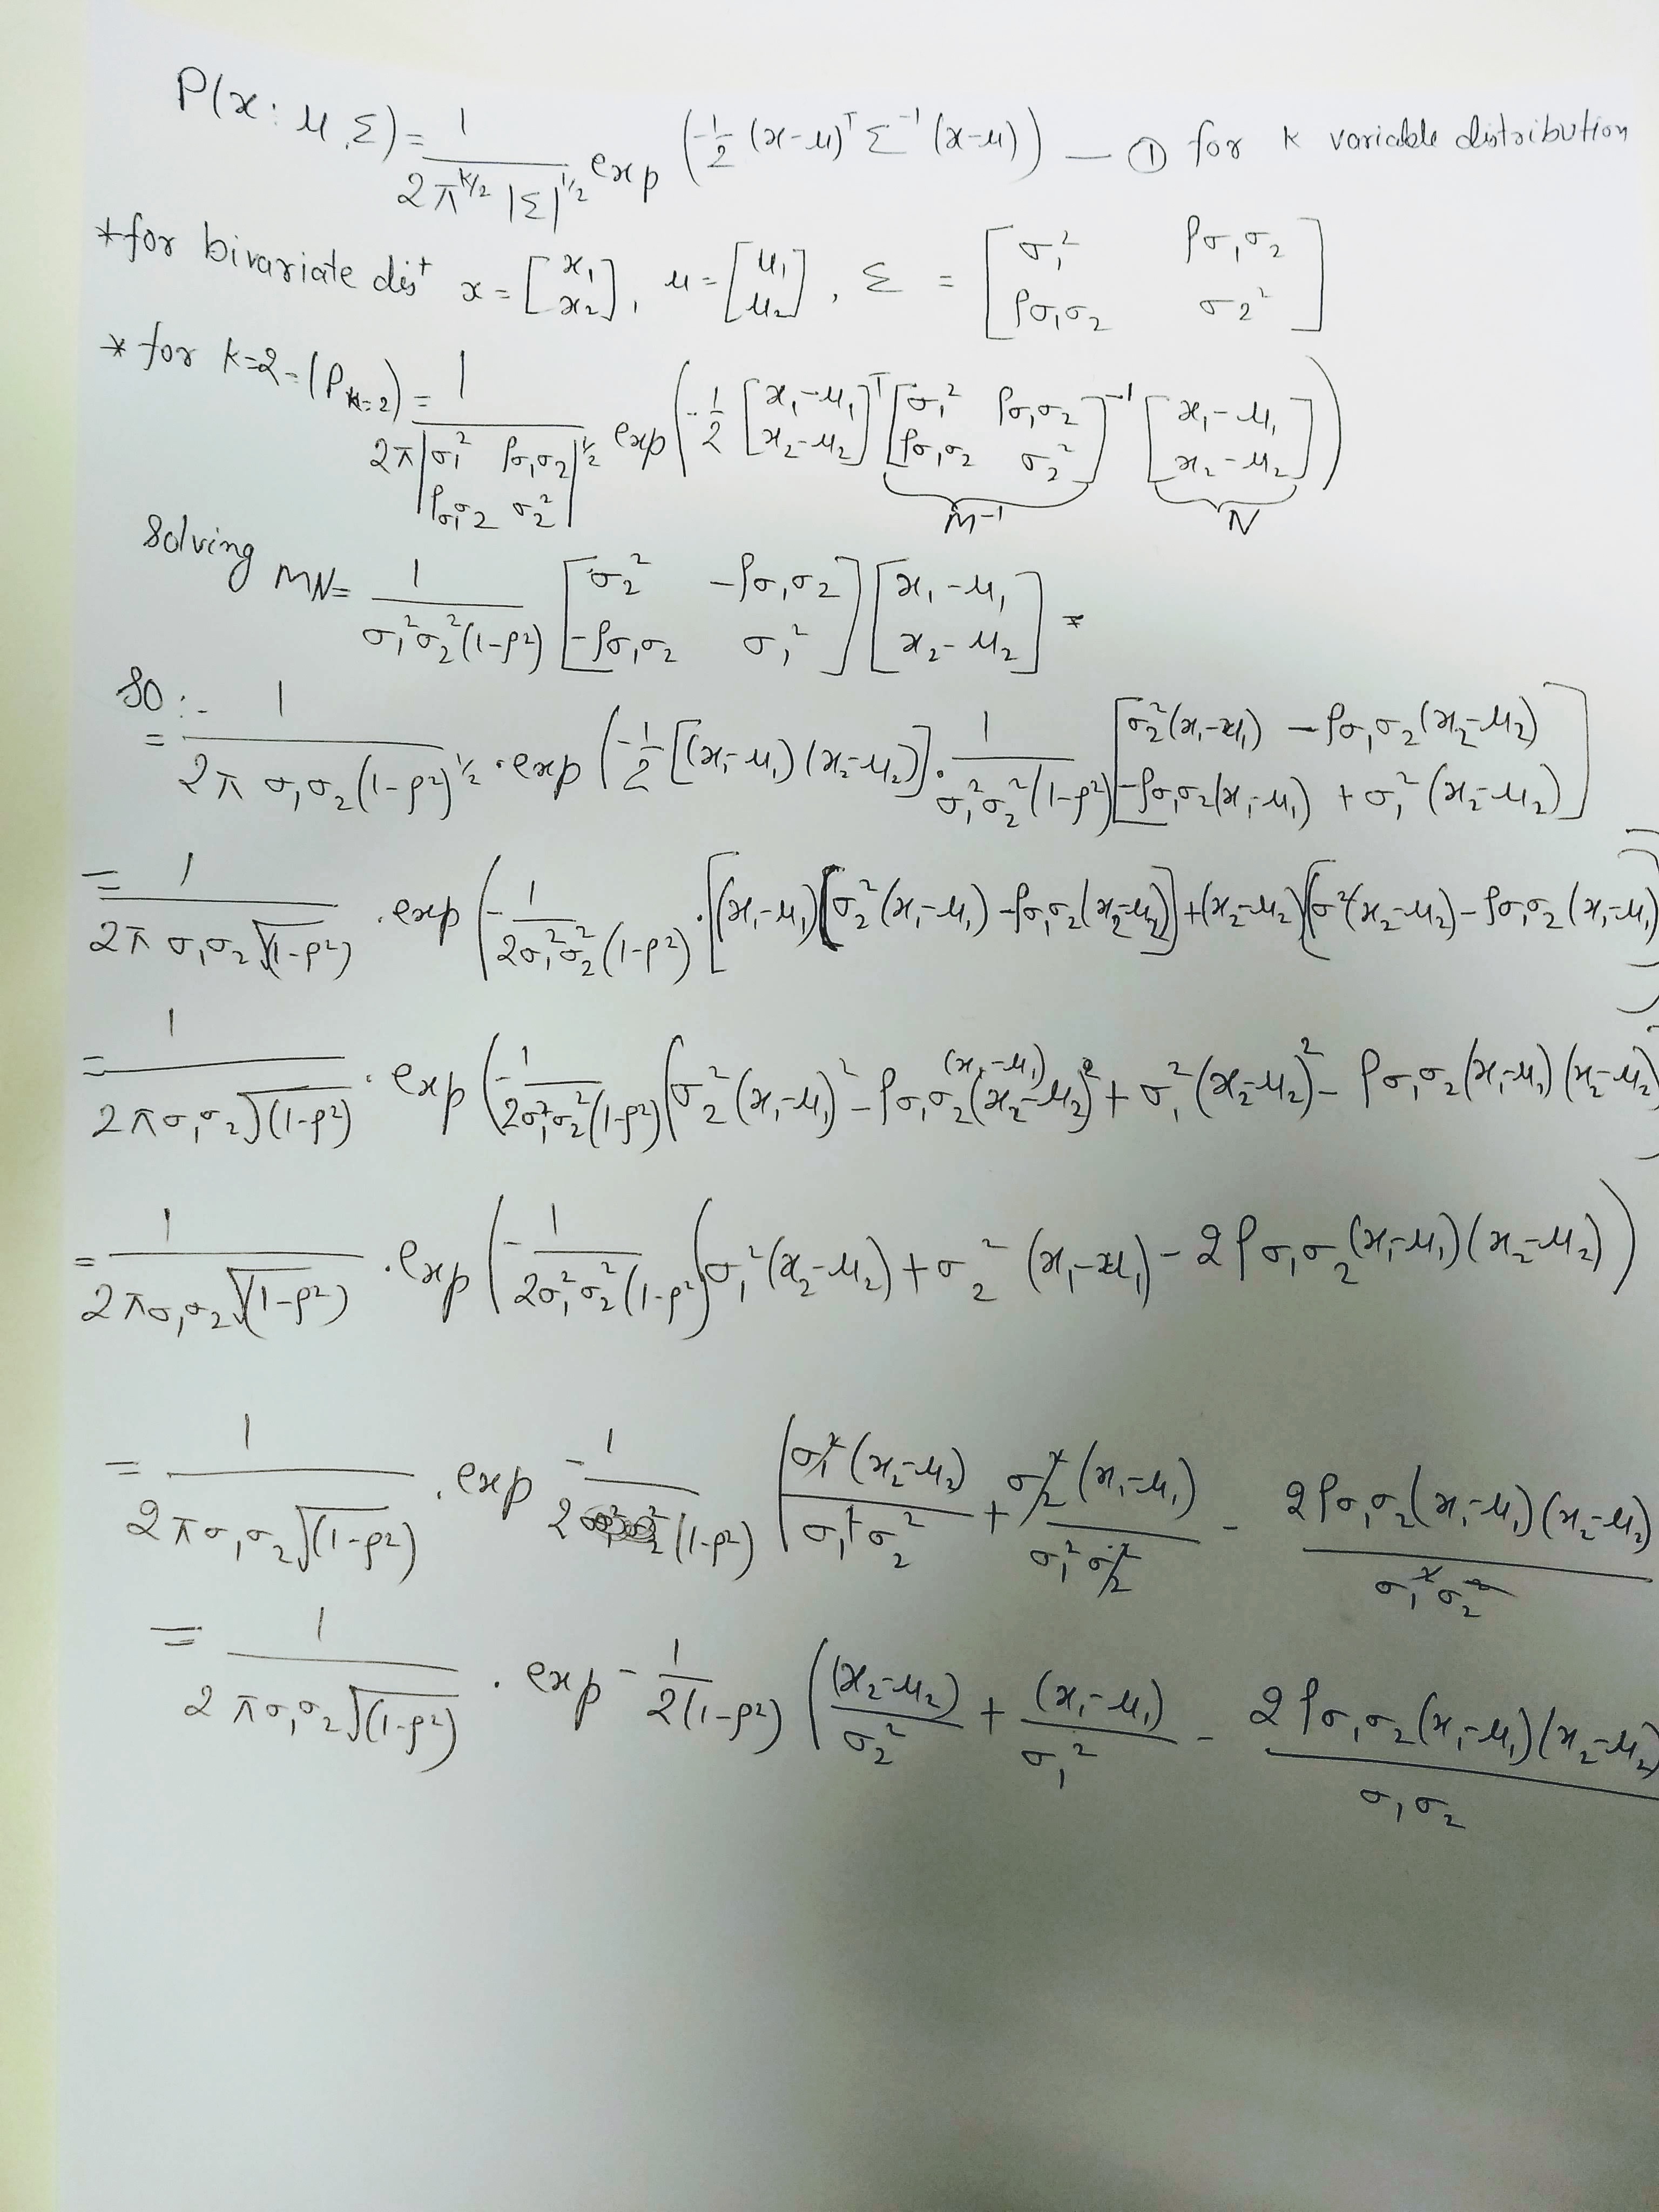 P(x : μ, Σ) = 1 / 2π^(k/2) |Σ|^(1/2) exp (-1/2 (x-μ)ᵀ Σ⁻¹ (x-μ)) — ① for k variable distribution
* for bivariate disᵗ x = [x₁ ; x₂], μ = [μ₁ ; μ₂], Σ = [σ₁² ρσ₁σ₂ ; ρσ₁σ₂ σ₂²]
* for k=2 = (P_(k=2)) = 1 / 2π |σ₁² ρσ₁σ₂ ; ρσ₁σ₂ σ₂²|^(1/2) exp (-1/2 [x₁-μ₁ ; x₂-μ₂]ᵀ [σ₁² ρσ₁σ₂ ; ρσ₁σ₂ σ₂²]⁻¹ [x₁-μ₁ ; x₂-μ₂])
M⁻¹ N
Solving MN = 1 / σ₁²σ₂²(1-ρ²) [σ₂² -ρσ₁σ₂ ; -ρσ₁σ₂ σ₁²] [x₁-μ₁ ; x₂-μ₂] =
SO :-
= 1 / 2π σ₁σ₂(1-ρ²)^(1/2) · exp (-1/2 [(x₁-μ₁) (x₂-μ₂)] · 1 / σ₁²σ₂²(1-ρ²) [σ₂²(x₁-μ₁) - ρσ₁σ₂(x₂-μ₂) ; -ρσ₁σ₂(x₁-μ₁) + σ₁²(x₂-μ₂)]
= 1 / 2π σ₁σ₂√(1-ρ²) · exp (-1 / 2σ₁²σ₂²(1-ρ²) · [(x₁-μ₁)[σ₂²(x₁-μ₁) - ρσ₁σ₂(x₂-μ₂)] + (x₂-μ₂)(σ²(x₂-μ₂) - ρσ₁σ₂(x₁-μ₁)
= 1 / 2πσ₁σ₂√(1-ρ²) · exp (-1 / 2σ₁²σ₂²(1-ρ²) (σ₂²(x₁-μ₁)² - ρσ₁σ₂(x₁-μ₁)(x₂-μ₂) + σ₁²(x₂-μ₂)² - ρσ₁σ₂(x₁-μ₁)(x₂-μ₂)
= 1 / 2πσ₁σ₂√(1-ρ²) · exp (-1 / 2σ₁²σ₂²(1-ρ²) (σ₁²(x₂-μ₂) + σ₂²(x₁-μ₁) - 2ρσ₁σ₂(x₁-μ₁)(x₂-μ₂))
= 1 / 2πσ₁σ₂√(1-ρ²) · exp -1 / 2(1-ρ²) (σ₁²(x₂-μ₂) / σ₁²σ₂² + σ₂²(x₁-μ₁) / σ₁²σ₂² - 2ρσ₁σ₂(x₁-μ₁)(x₂-μ₂) / σ₁²σ₂²
= 1 / 2πσ₁σ₂√(1-ρ²) · exp - 1 / 2(1-ρ²) ((x₂-μ₂) / σ₂² + (x₁-μ₁) / σ₁² - 2ρσ₁σ₂(x₁-μ₁)(x₂-μ₂) / σ₁σ₂